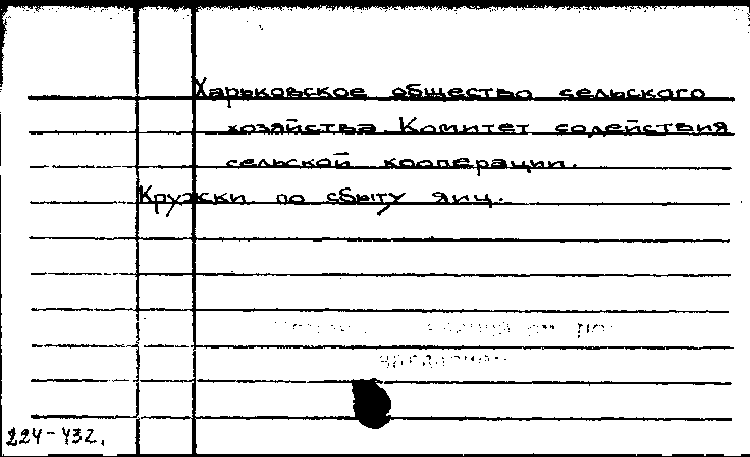 Харьковское общество сельского
хозяйства. Комитет содействия
сельской кооперации.
Кружки по сбыту яиц.
224-432.